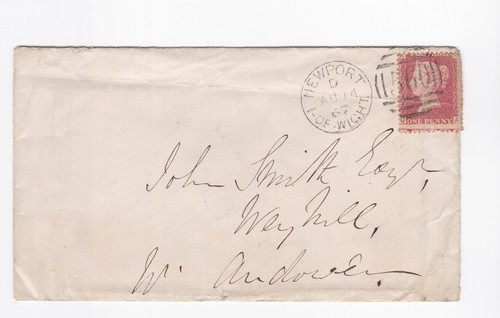 NEWPORT
D
AU 14
I-OF-WIGHT
ONE PENNY
John Smith Esqr,
Weyhill,
Nr. Andover